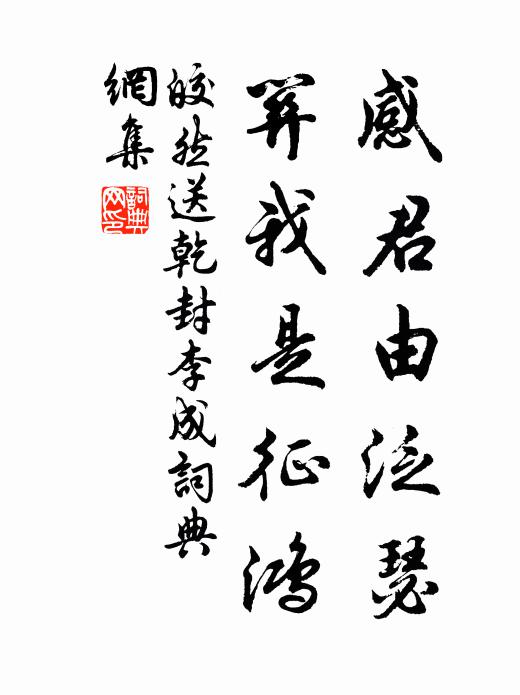 感君由泛瑟
我是征鴻
皎然送乾封李成詞典
網集
詞典
网印